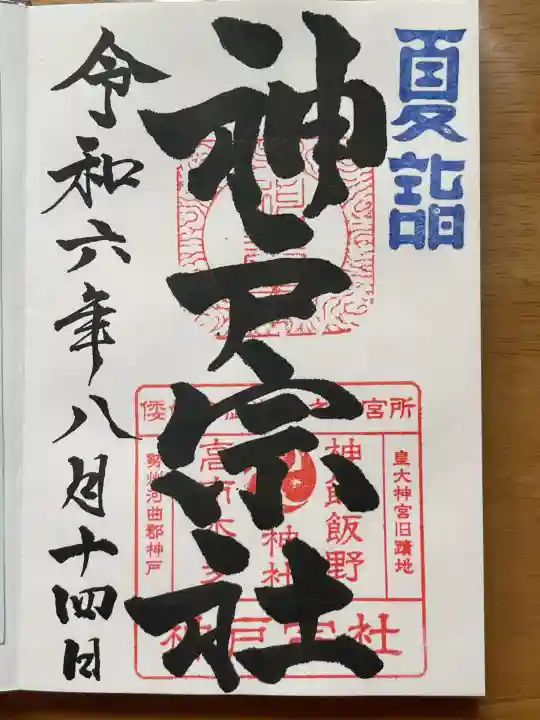 夏詣
神戸宗社
皇大神宮旧蹟地
神館飯野
神社
勢州河曲郡神戸
宮所
神戸宗社
令和六年八月十四日